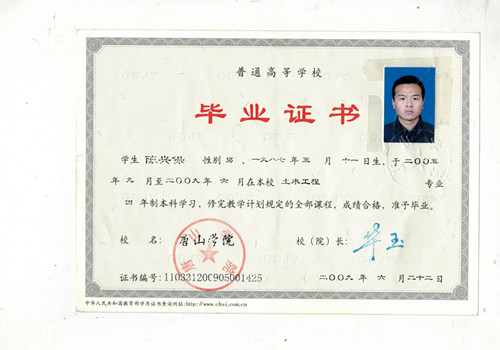 普通高等学校
毕业证书
学生 陈兴荣 性别 男，一九八七年 五 月 十一日生，于二〇〇五
年 九 月至二〇〇九年 六 月在本校 土木工程 专业
四 年制本科学习，修完教学计划规定的全部课程，成绩合格，准予毕业。
校 名： 唐山学院 校（院）长： 华玉
证书编号：11033120C905001425 二〇〇九年 六 月二十二日
中华人民共和国教育部学历证书查询网址:http://www.chsi.com.cn